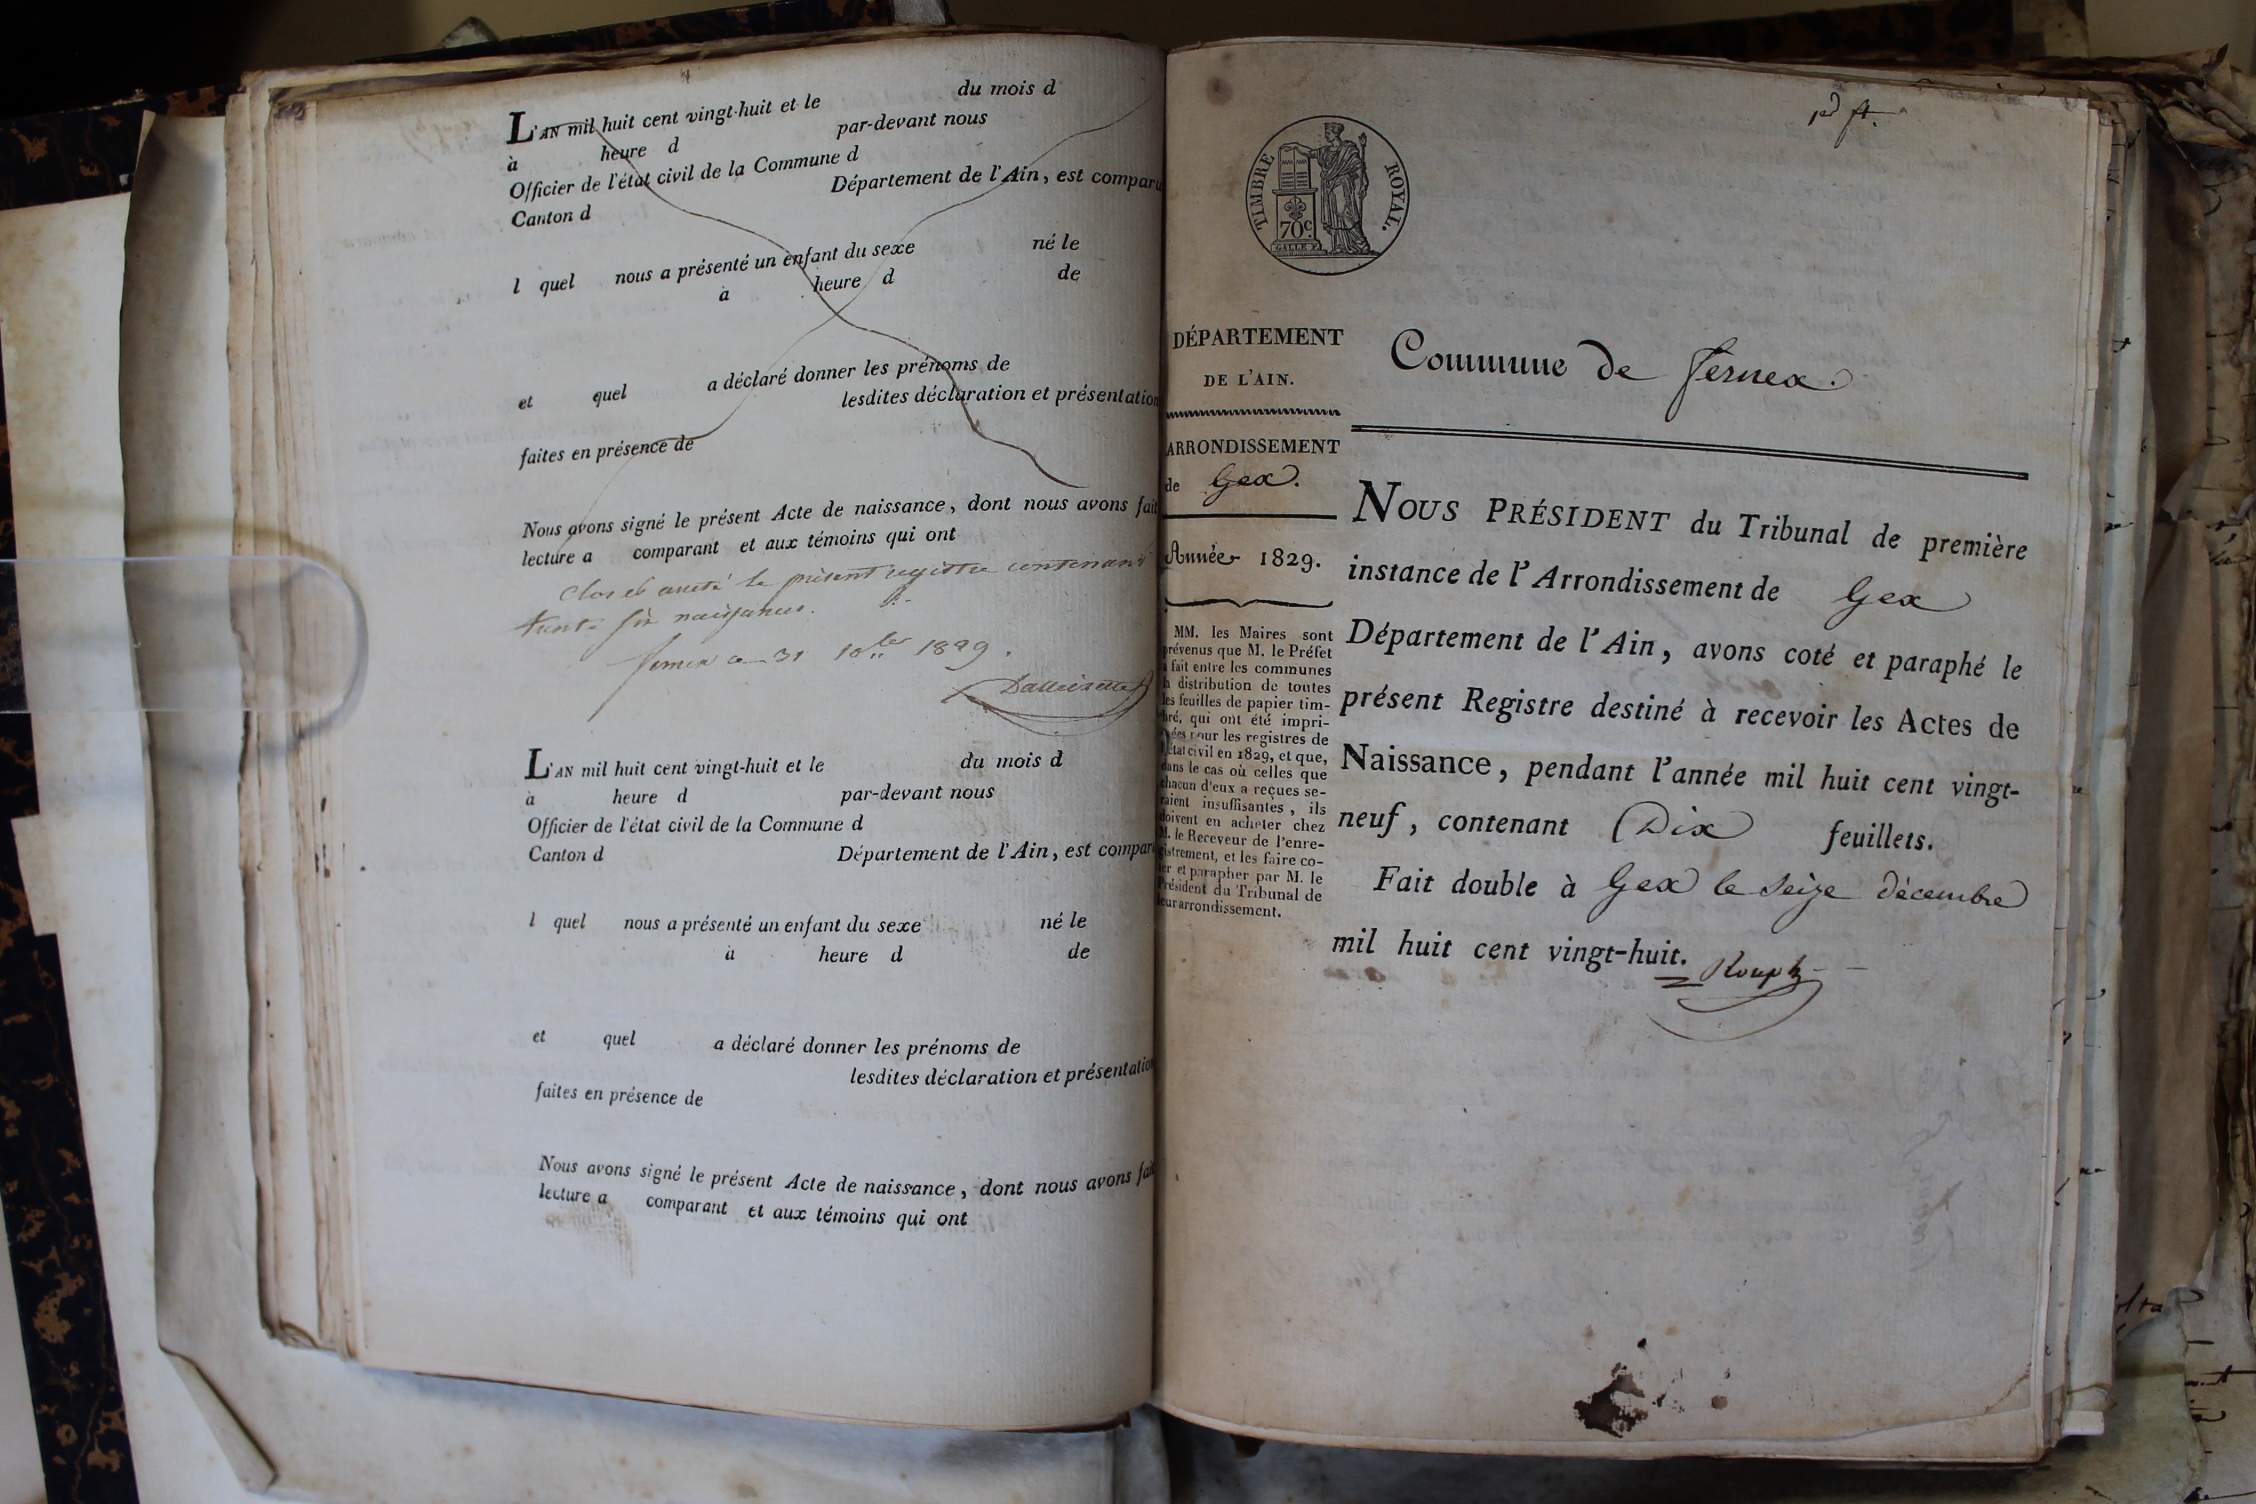 L'AN mil huit cent vingt-huit et le du mois d
à heure d par-devant nous
Officier de l'état civil de la Commune d
Canton d Département de l'Ain, est comparu
l quel nous a présenté un enfant du sexe né le
à heure d de
et quel a déclaré donner les prénoms de
lesdites déclaration et présentation
faites en présence de
Nous avons signé le présent Acte de naissance, dont nous avons fait
lecture a comparant et aux témoins qui ont
Clos et arrêté le présent registre contenant
trente six naissances.
fernex ce 31 10bre 1829.
L'AN mil huit cent vingt-huit et le du mois d
à heure d par-devant nous
Officier de l'état civil de la Commune d
Canton d Département de l'Ain, est comparu
l quel nous a présenté un enfant du sexe né le
à heure d de
et quel a déclaré donner les prénoms de
lesdites déclaration et présentation
faites en présence de
Nous avons signé le présent Acte de naissance, dont nous avons fait
lecture a comparant et aux témoins qui ont
TIMBRE ROYAL.
70 c.
GALLE F.
DÉPARTEMENT
DE L'AIN.
ARRONDISSEMENT
de Gex.
Année 1829.
MM. les Maires sont
prévenus que M. le Préfet
a fait entre les communes
la distribution de toutes
les feuilles de papier tim-
bré, qui ont été impri-
mées pour les registres de
l'état civil en 1829, et que,
dans le cas où celles que
chacun d'eux a reçues se-
raient insuffisantes, ils
doivent en acheter chez
M. le Receveur de l'enre-
gistrement, et les faire co-
ter et parapher par M. le
Président du Tribunal de
leur arrondissement.
Commune de fernex.
NOUS PRÉSIDENT du Tribunal de première
instance de l'Arrondissement de Gex
Département de l'Ain, avons coté et paraphé le
présent Registre destiné à recevoir les Actes de
Naissance, pendant l'année mil huit cent vingt-
neuf, contenant Dix feuillets.
Fait double à Gex le Seize décembre
mil huit cent vingt-huit.